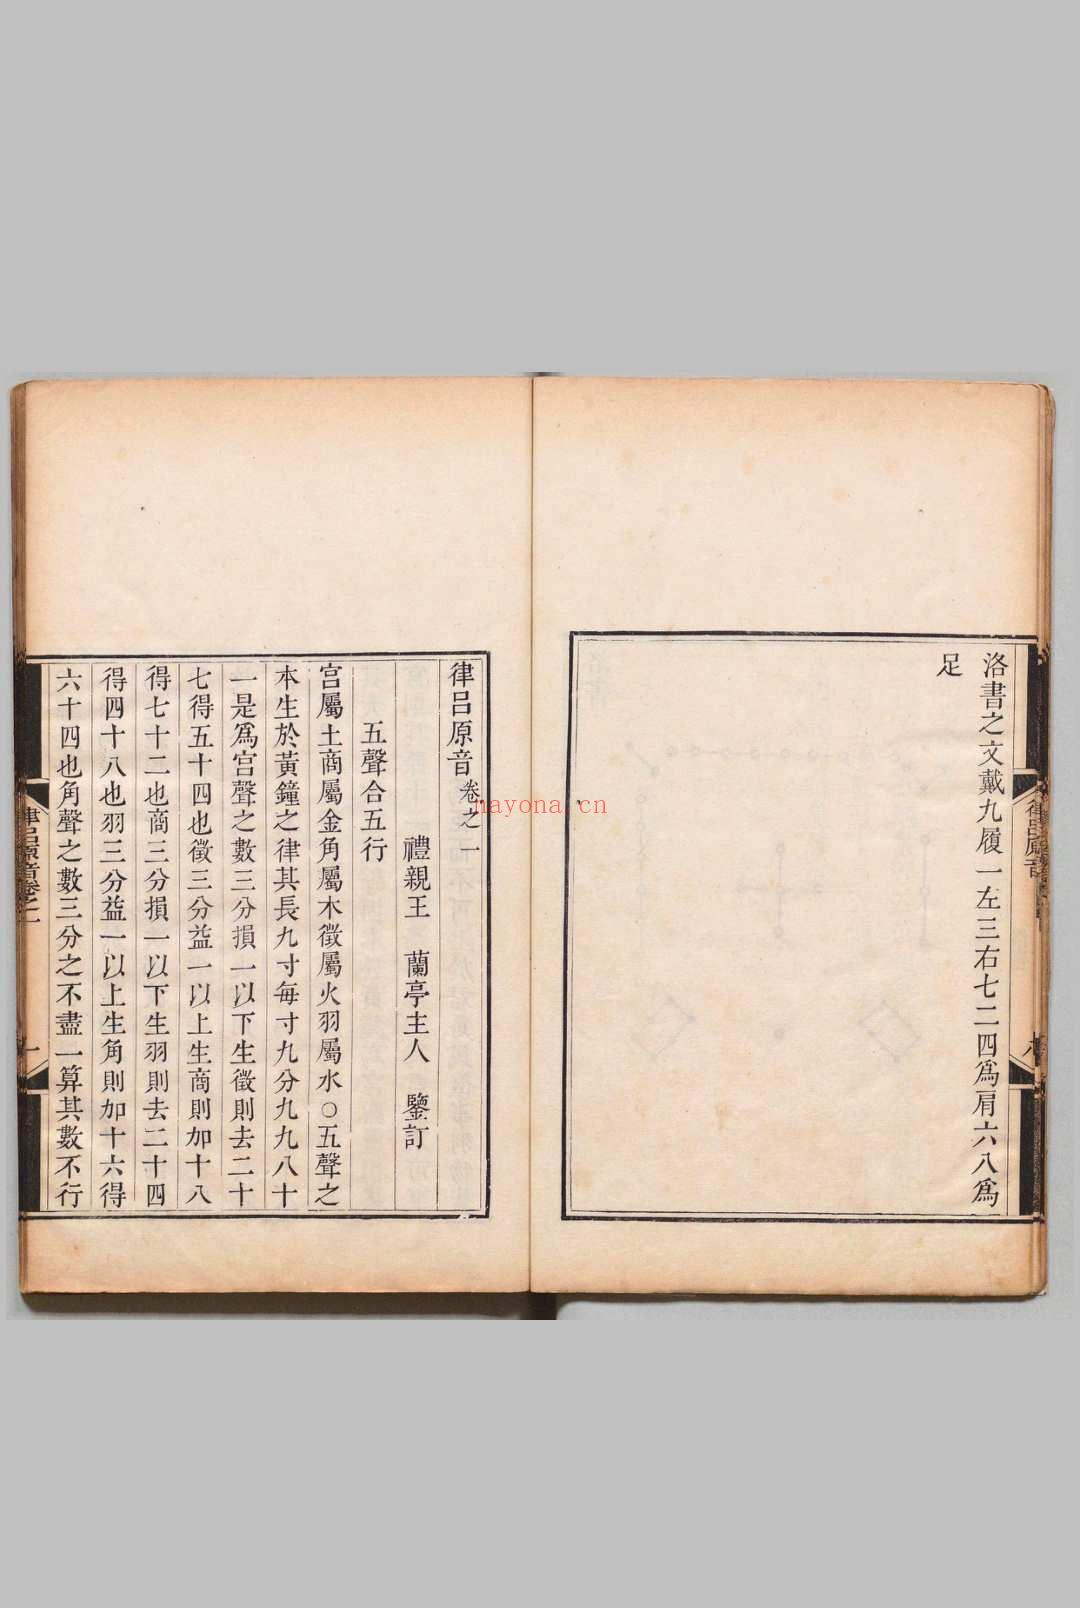 洛書之文戴九履一左三右七二四爲肩六八爲
足
律呂原音
八
律呂原音 卷之一
禮親王 蘭亭主人 鑒訂
五聲合五行
宮屬土商屬金角屬木徵屬火羽屬水○五聲之
本生於黃鐘之律其長九寸每寸九分九九八十
一是爲宮聲之數三分損一以下生徵則去二十
七得五十四也徵三分益一以上生商則加十八
得七十二也商三分損一以下生羽則去二十四
得四十八也羽三分益一以上生角則加十六得
六十四也角聲之數三分之不盡一算其數不行
律呂原音卷之一
一
nayona.cn